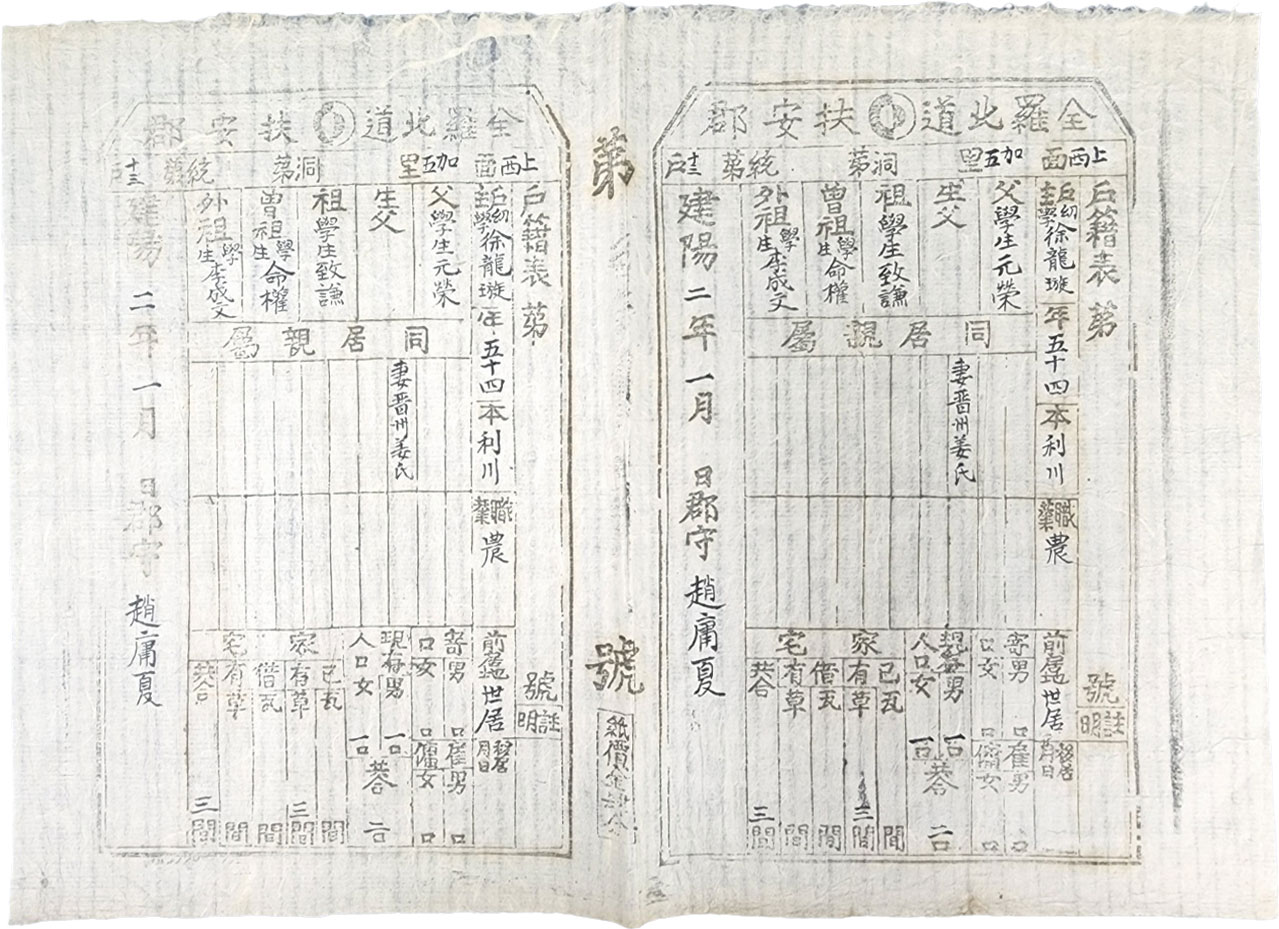 全羅北道扶安郡
上西面 加五里 洞第 統第 十三戶
戶籍表 第 號
註明
戶主 幼學徐龍璇 年五十四 本利川 職業 農 前居 世居 移居 月日
父學生元榮
生父
祖學生致謙
曾祖學生命權
外祖學生李成文
同居親屬
妻晋州姜氏
寄口 男 口 女 口
雇男 口
傭女 口
現存人口 男 一口 女 一口 共合 二口
家宅
己有 瓦 間 草 三間
借有 瓦 間 草 間
共合 三間
建陽二年一月 日郡守 趙庸夏
第 號
紙價金
全羅北道扶安郡
上西面 加五里 洞第 統第 十三戶
戶籍表 第 號
註明
戶主 幼學徐龍璇 年五十四 本利川 職業 農 前居 世居 移居 月日
父學生元榮
生父
祖學生致謙
曾祖學生命權
外祖學生李成文
同居親屬
妻晋州姜氏
寄口 男 口 女 口
雇男 口
傭女 口
現存人口 男 一口 女 一口 共合 二口
家宅
己有 瓦 間 草 三間
借有 瓦 間 草 間
共合 三間
建陽二年一月 日郡守 趙庸夏